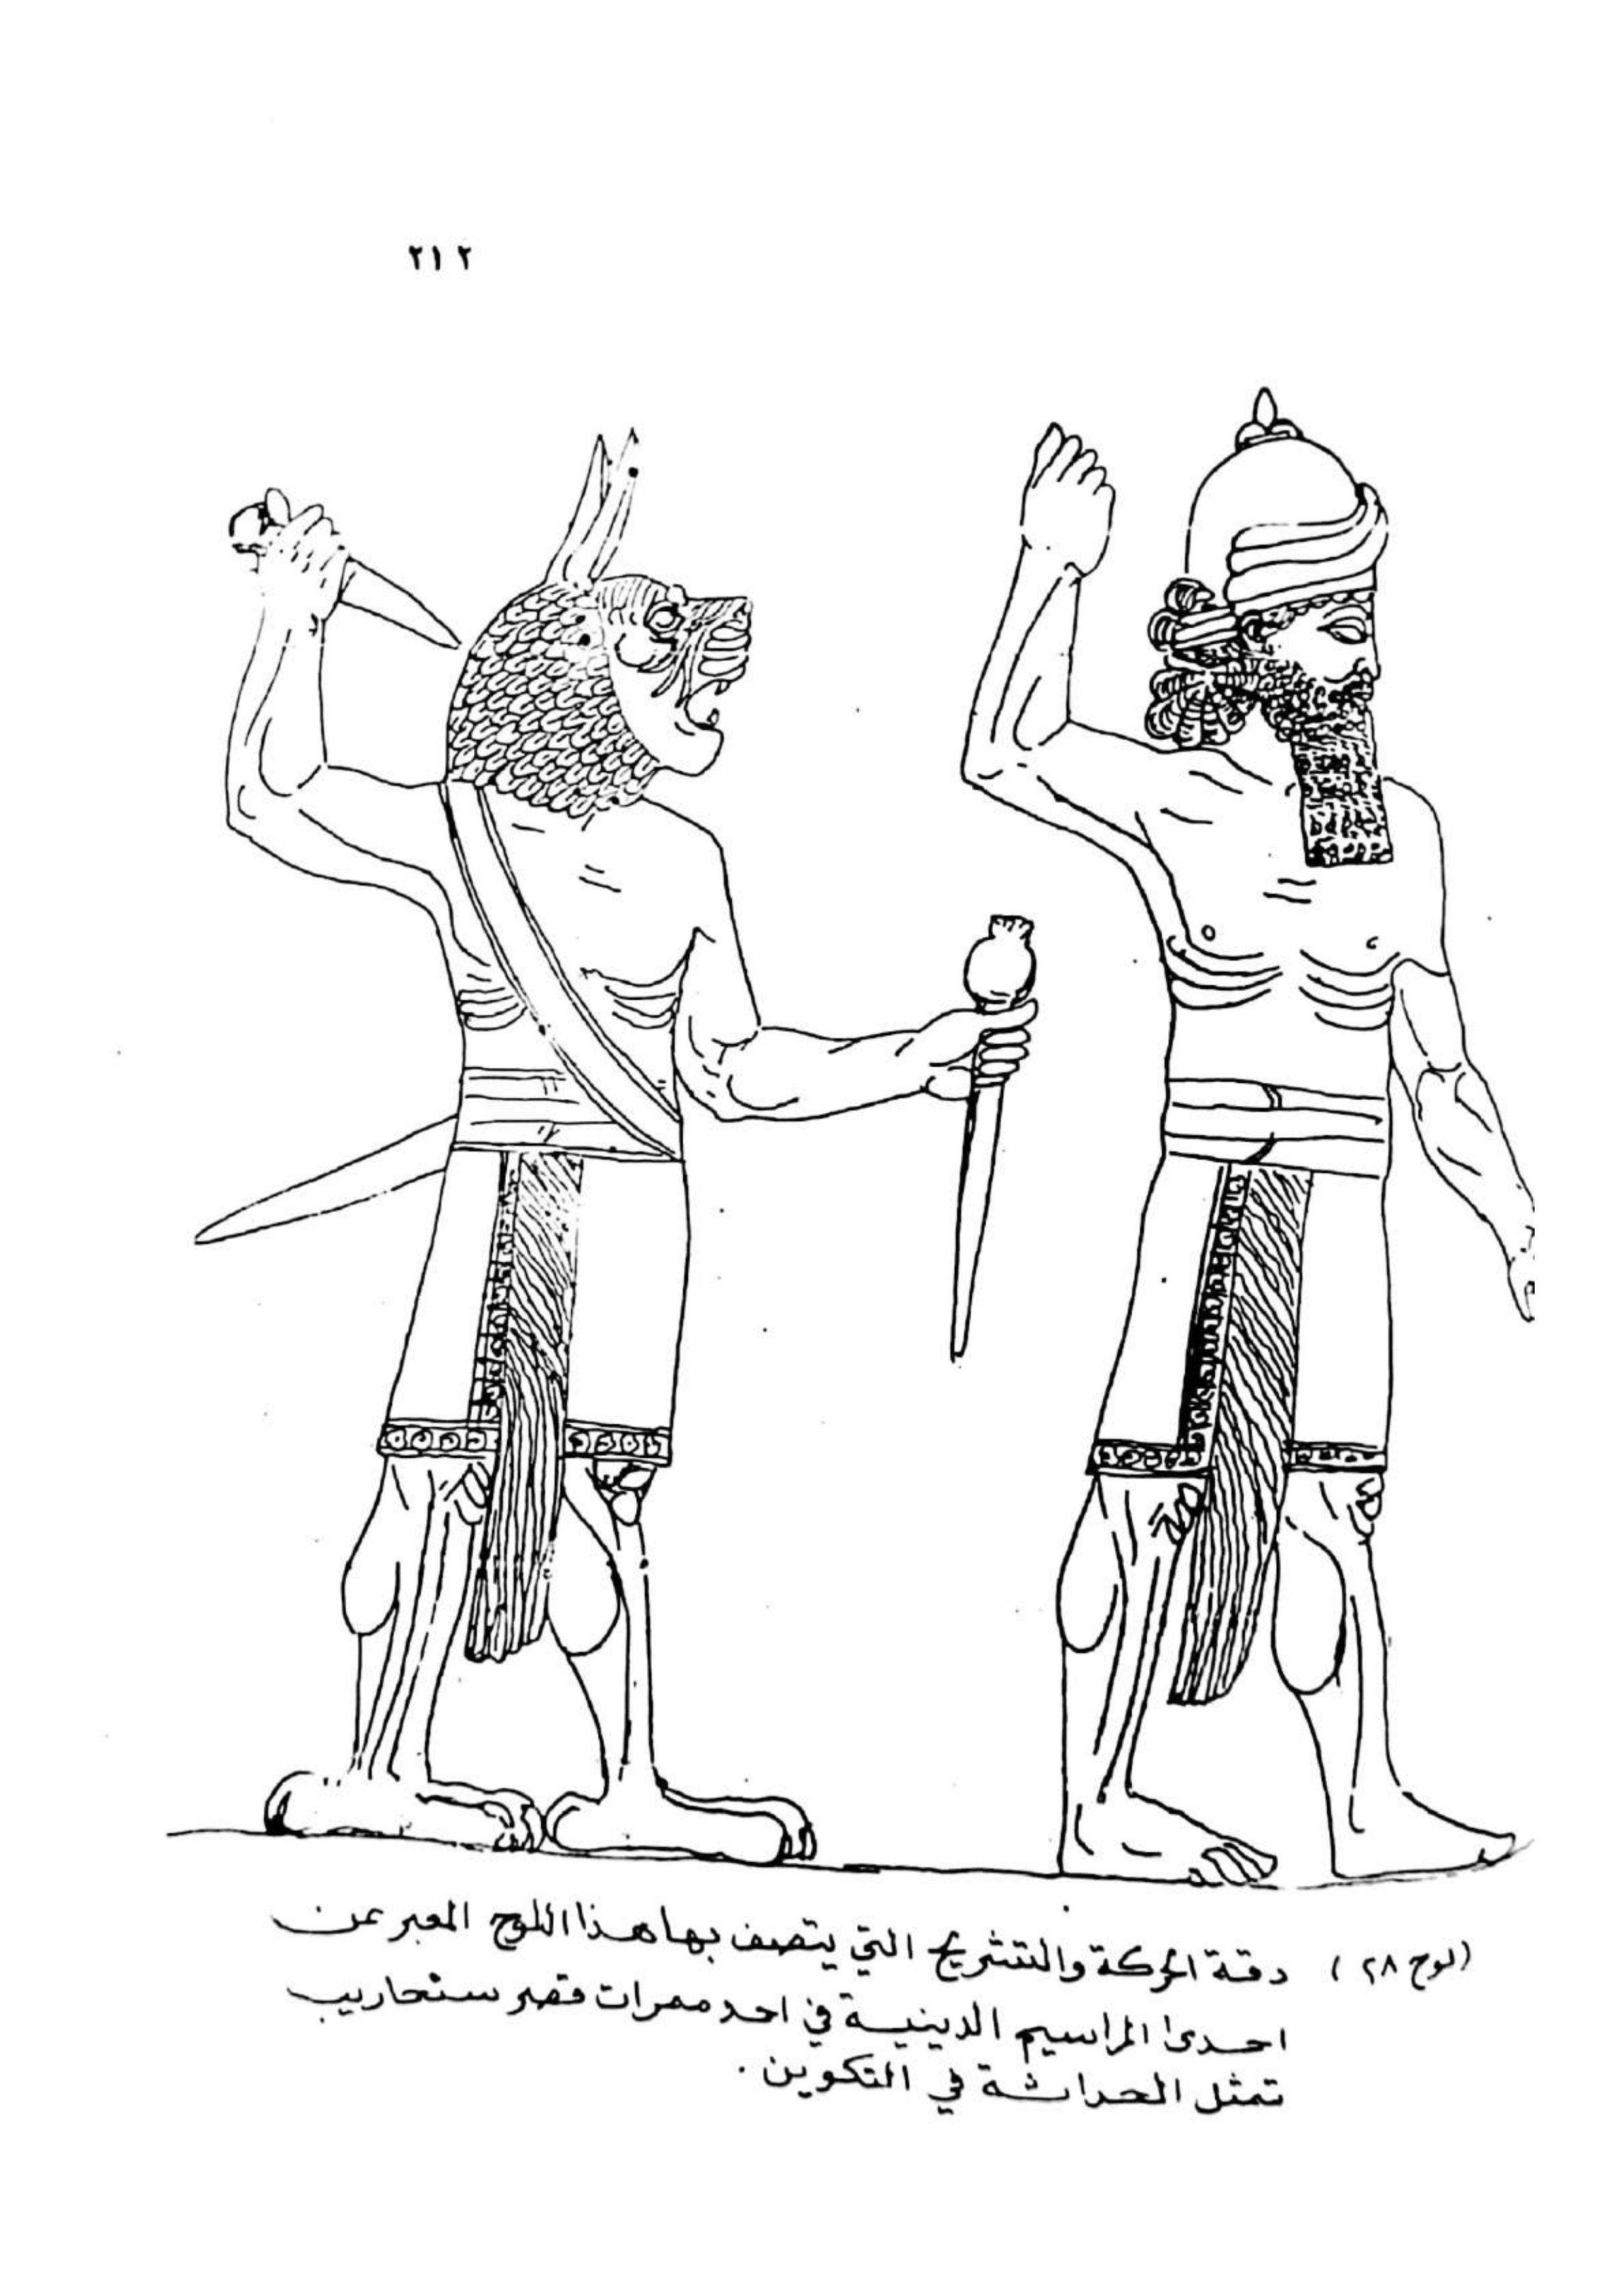 ٢١٢
(لوح ٢٨) دقة الحركة والتشريح التي يتصف بها هذا اللوح المعبر عن
احدى المراسيم الدينية في احد ممرات قصر سنحاريب
تمثل الحداثة في التكوين .